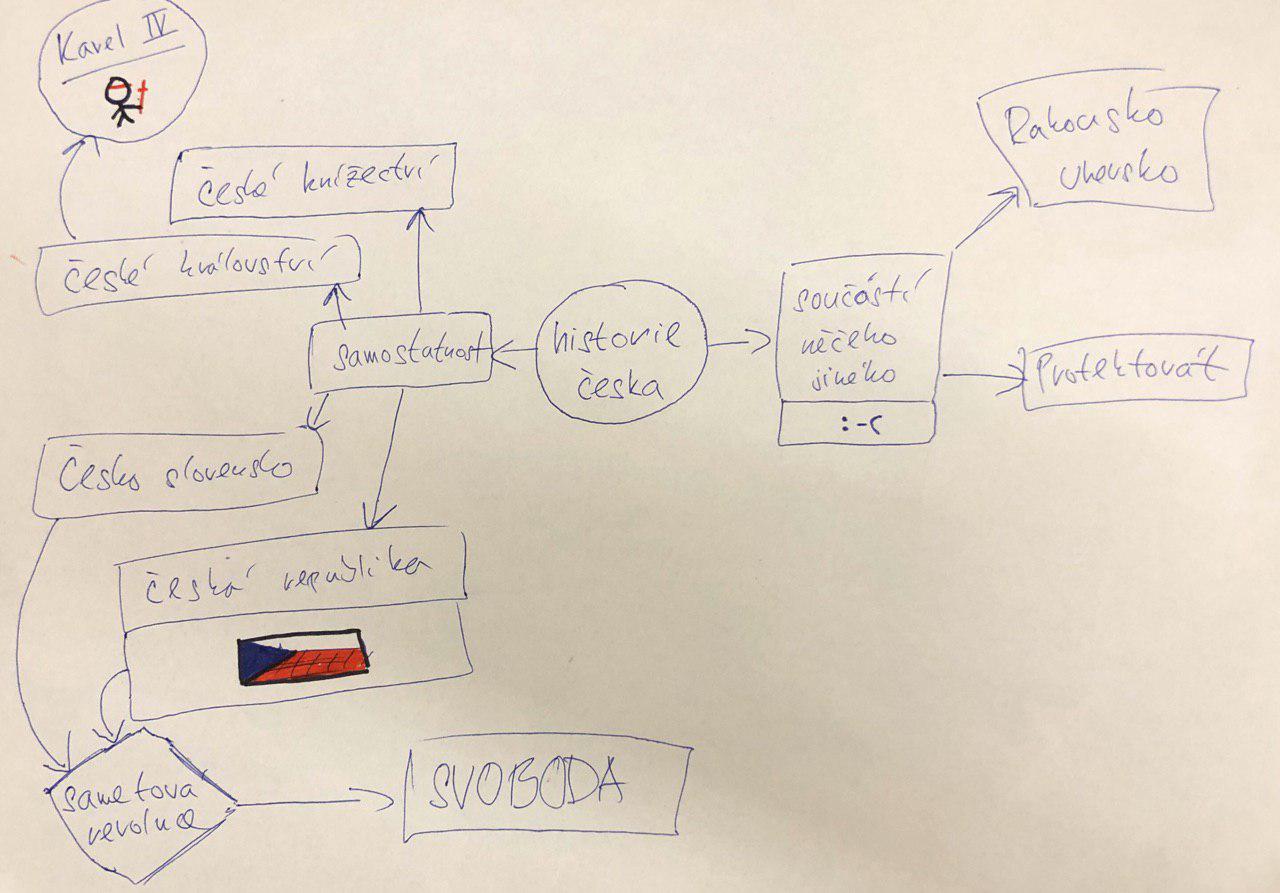 Karel IV
české knížectví
české království
samostatnost
historie
česka
součástí
něčeho
jiného
:-(
Rakousko
uhersko
Protektorát
Česko slovensko
česká republika
sametova
revoluce
SVOBODA